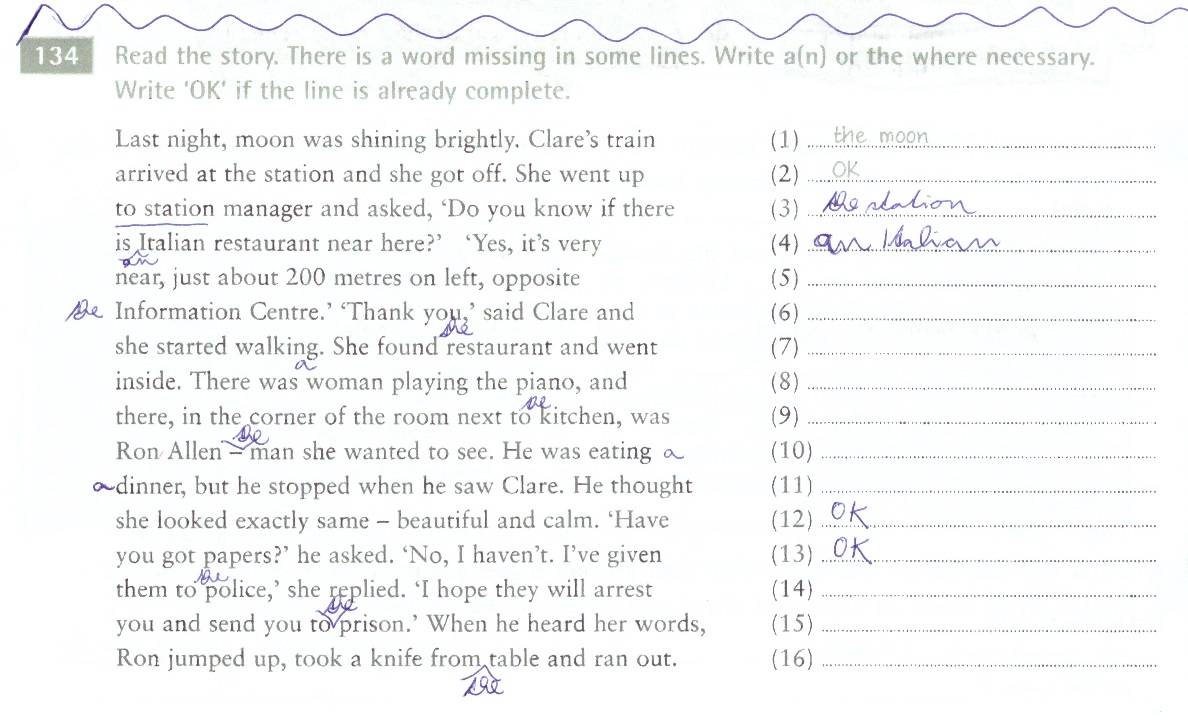 134 Read the story. There is a word missing in some lines. Write a(n) or the where necessary.
Write 'OK' if the line is already complete.
Last night, moon was shining brightly. Clare's train (1) the moon
arrived at the station and she got off. She went up (2) OK
to station manager and asked, 'Do you know if there (3) the station
is Italian restaurant near here?' 'Yes, it's very (4) an Italian
an
near, just about 200 metres on left, opposite (5)
the Information Centre.' 'Thank you,' said Clare and (6)
the
she started walking. She found restaurant and went (7)
a
inside. There was woman playing the piano, and (8)
the
there, in the corner of the room next to kitchen, was (9)
the
Ron Allen – man she wanted to see. He was eating a (10)
a dinner, but he stopped when he saw Clare. He thought (11)
she looked exactly same – beautiful and calm. 'Have (12) OK
you got papers?' he asked. 'No, I haven't. I've given (13) OK
the
them to police,' she replied. 'I hope they will arrest (14)
the
you and send you to prison.' When he heard her words, (15)
Ron jumped up, took a knife from table and ran out. (16)
the